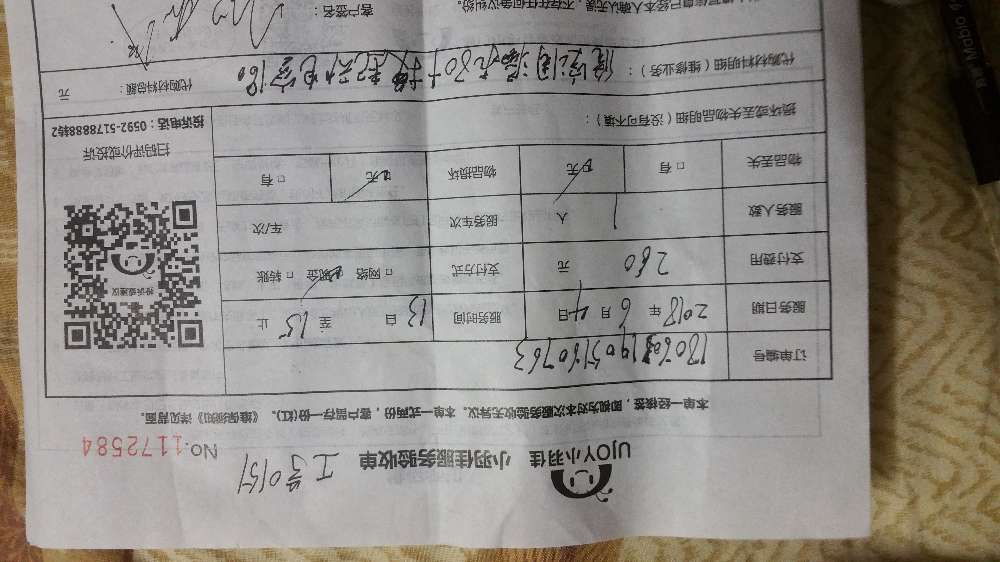 UJOY小羽佳 小羽佳服务验收单 工号0151 NO.1172584
本单一经接签，即视为对本次服务验收无异议。本单一式两份，客户留存一份(红)。《维保须知》详见背面。
订单编号
服务日期 2018 年 6 月 4 日 服务时间 13 自 至 15 止
支付费用 260 元 支付方式 □ 网络 □ 现金 □ 转账
服务人数 1 人 服务车次 车/次
物品丢失 □ 有 □ 无 物品损坏 □ 无 □ 有
投诉或建议
扫码评价或投诉
投诉电话：0592-5178888转2
损坏或丢失物品明细（没有可不填）：
代购材料明细（维修业务）：
代购材料总额： 元
客户签名：